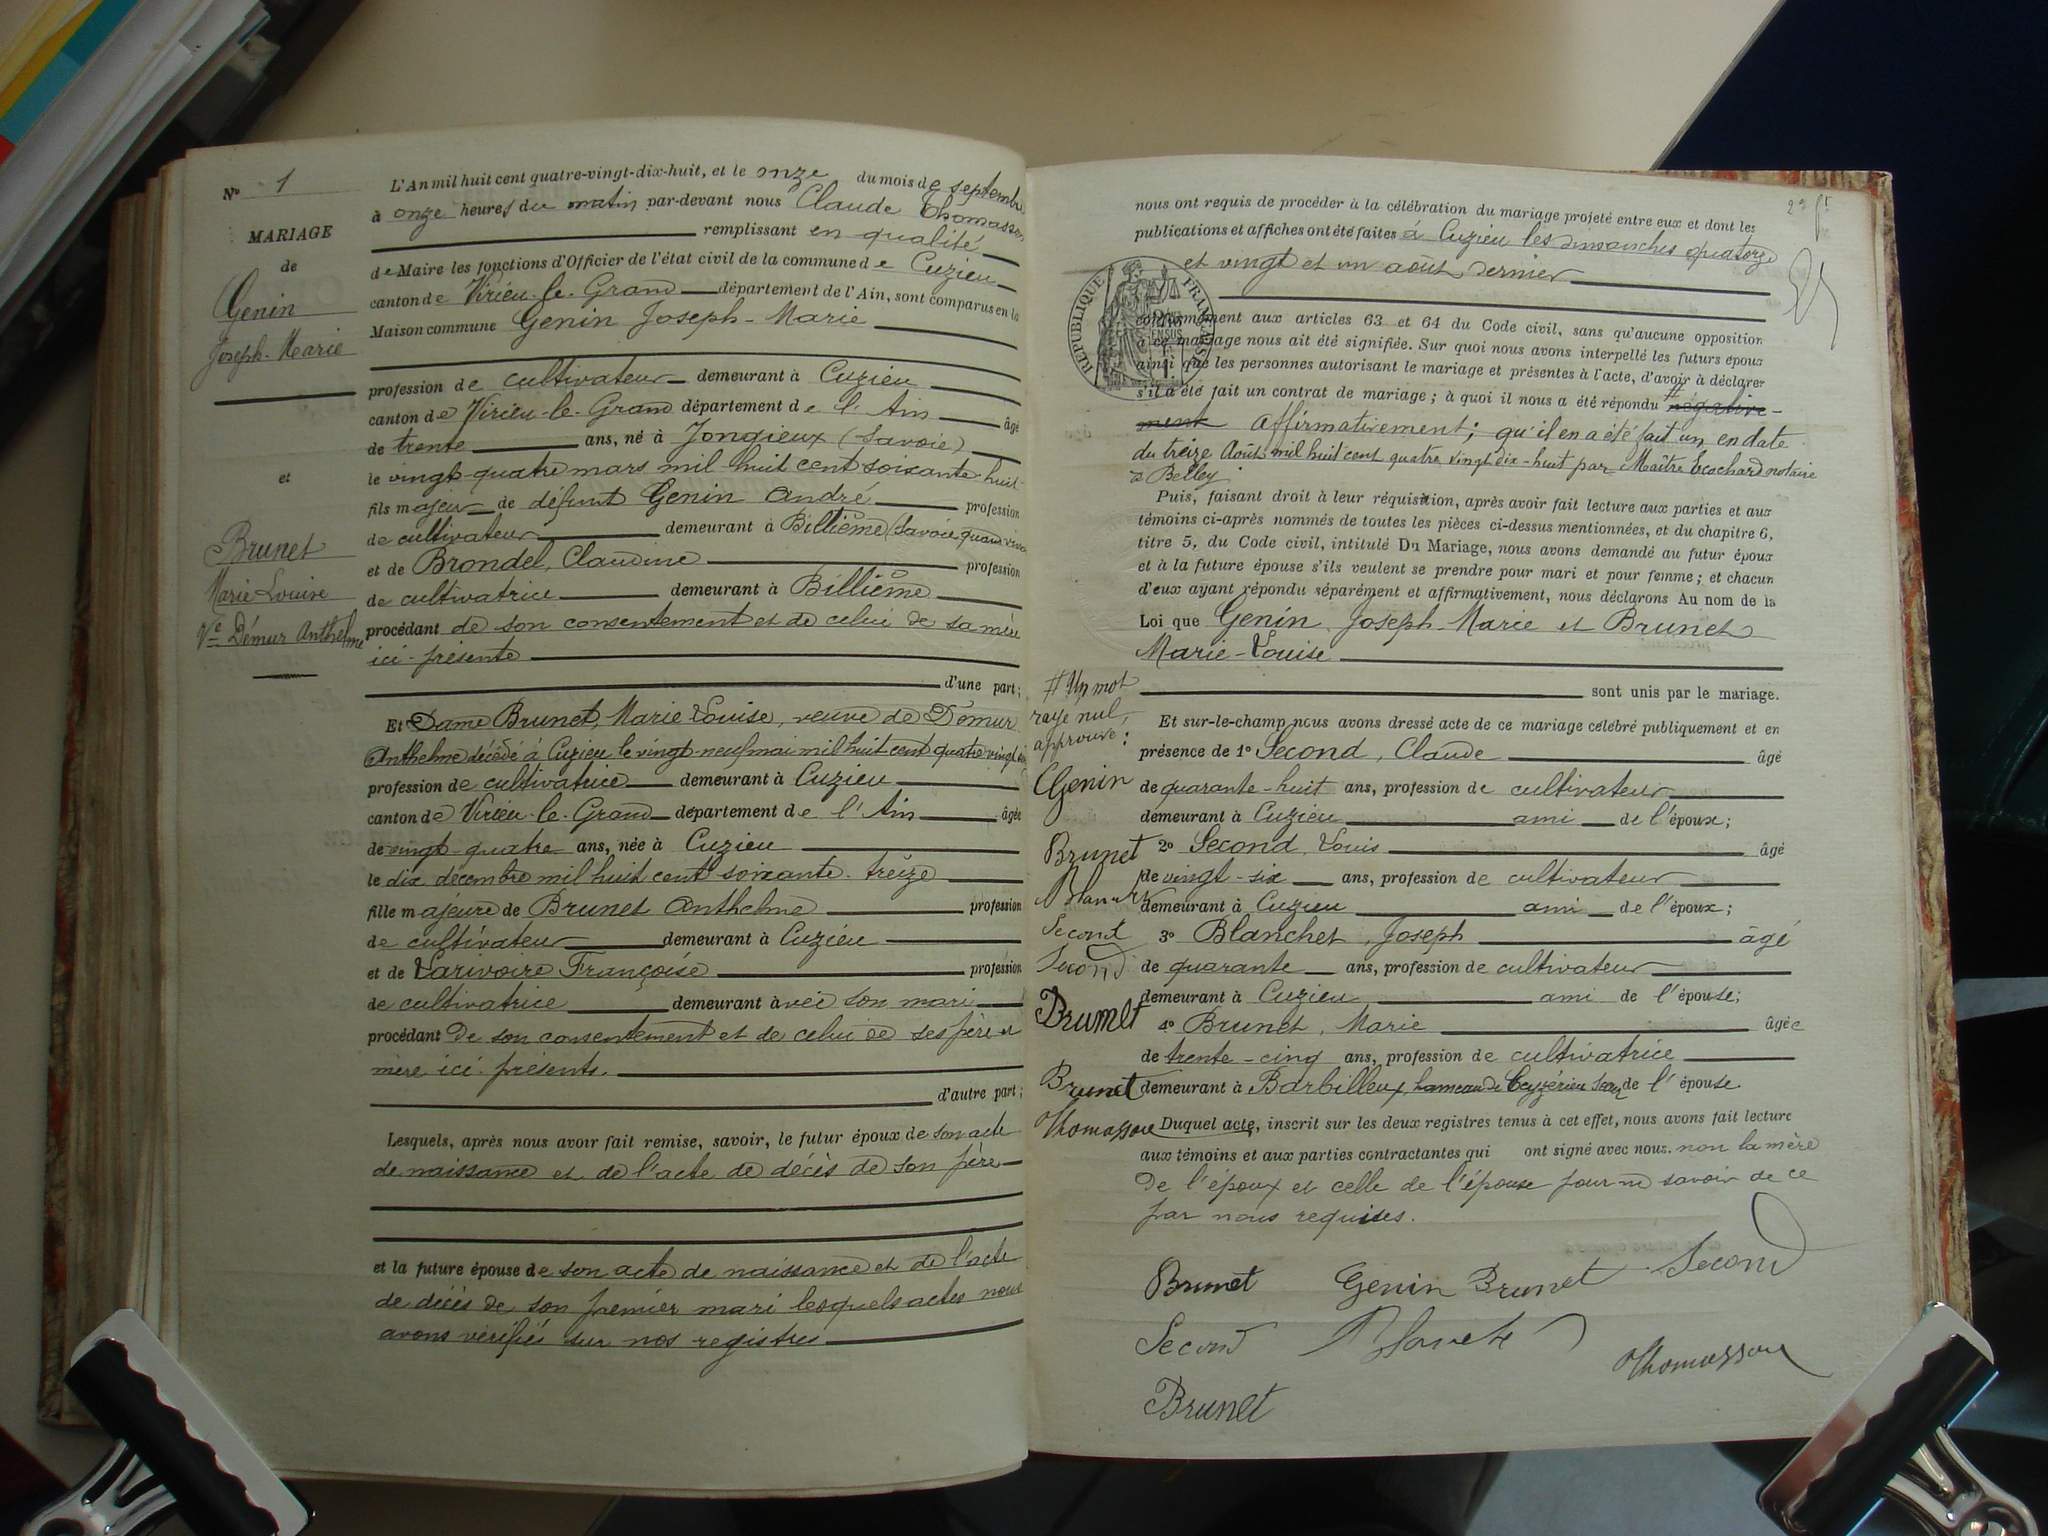 N° 1
MARIAGE
de
Genin
Joseph-Marie
et
Brunet
Marie Louise
Vve Démur Anthelme
L'An mil huit cent quatre-vingt-dix-huit, et le onze du mois de septembre
à onze heures du matin par-devant nous Claude Thomasson
remplissant en qualité
de Maire les fonctions d'Officier de l'état civil de la commune de Cuzieu
canton de Virieu-le-Grand département de l'Ain, sont comparus en la
Maison commune Genin Joseph-Marie
profession de cultivateur demeurant à Cuzieu
canton de Virieu-le-Grand département de l'Ain âgé
de trente ans, né à Jongieux (Savoie)
le vingt-quatre mars mil huit cent soixante-huit
fils majeur de défunt Genin André profession
de cultivateur demeurant à Billième (Savoie quand vivait
et de Brondel, Claudine profession
de cultivatrice demeurant à Billième
procédant de son consentement et de celui de sa mère
ici présente
d'une part;
Et Dame Brunet, Marie Louise, veuve de Démur
Anthelme décédé à Cuzieu le vingt-neuf mai mil huit cent quatre vingt
profession de cultivatrice demeurant à Cuzieu
canton de Virieu-le-Grand département de l'Ain âgée
de vingt-quatre ans, née à Cuzieu
le dix décembre mil huit cent soixante-treize
fille majeure de Brunet Anthelme profession
de cultivateur demeurant à Cuzieu
et de Larivoire Françoise profession
de cultivatrice demeurant avec son mari
procédant de son consentement et de celui de ses père et
mère ici présents.
d'autre part;
Lesquels, après nous avoir fait remise, savoir, le futur époux de son acte
de naissance et de l'acte de décès de son père
et la future épouse de son acte de naissance et de l'acte
de décès de son premier mari lesquels actes nous
avons vérifiés sur nos registres
nous ont requis de procéder à la célébration du mariage projeté entre eux et dont les
publications et affiches ont été faites à Cuzieu les dimanches quatorze
et vingt et un août dernier
REPUBLIQUE FRANÇAISE
conformément aux articles 63 et 64 du Code civil, sans qu'aucune opposition
à ce mariage nous ait été signifiée. Sur quoi nous avons interpellé les futurs époux
ainsi que les personnes autorisant le mariage et présentes à l'acte, d'avoir à déclarer
s'il a été fait un contrat de mariage; à quoi il nous a été répondu # négative-
ment affirmativement; qu'il en a été fait un en date
du treize Août mil huit cent quatre vingt dix-huit par Maître Ecochard notaire
à Belley
Puis, faisant droit à leur réquisition, après avoir fait lecture aux parties et aux
témoins ci-après nommés de toutes les pièces ci-dessus mentionnées, et du chapitre 6,
titre 5, du Code civil, intitulé Du Mariage, nous avons demandé au futur époux
et à la future épouse s'ils veulent se prendre pour mari et pour femme; et chacun
d'eux ayant répondu séparément et affirmativement, nous déclarons Au nom de la
Loi que Genin Joseph-Marie et Brunet
Marie-Louise
sont unis par le mariage.
# Un mot
rayé nul,
approuvé:
Genin
Brunet
Second
Second
Brunet
Brunet
Thomasson
Et sur-le-champ nous avons dressé acte de ce mariage célébré publiquement et en
présence de 1° Second, Claude âgé
de quarante-huit ans, profession de cultivateur
demeurant à Cuzieu ami de l'époux;
2° Second, Louis âgé
de vingt-six ans, profession de cultivateur
demeurant à Cuzieu ami de l'époux;
3° Blanchet, Joseph âgé
de quarante ans, profession de cultivateur
demeurant à Cuzieu ami de l'épouse;
4° Brunet, Marie âgée
de trente-cinq ans, profession de cultivatrice
demeurant à Barbilleux, hameau de Ceyzérieu sœur de l'épouse.
Duquel acte, inscrit sur les deux registres tenus à cet effet, nous avons fait lecture
aux témoins et aux parties contractantes qui ont signé avec nous. non la mère
de l'époux et celle de l'épouse pour ne savoir de ce
par nous requises.
Brunet Genin Brunet Second
Second
Thomasson
Brunet